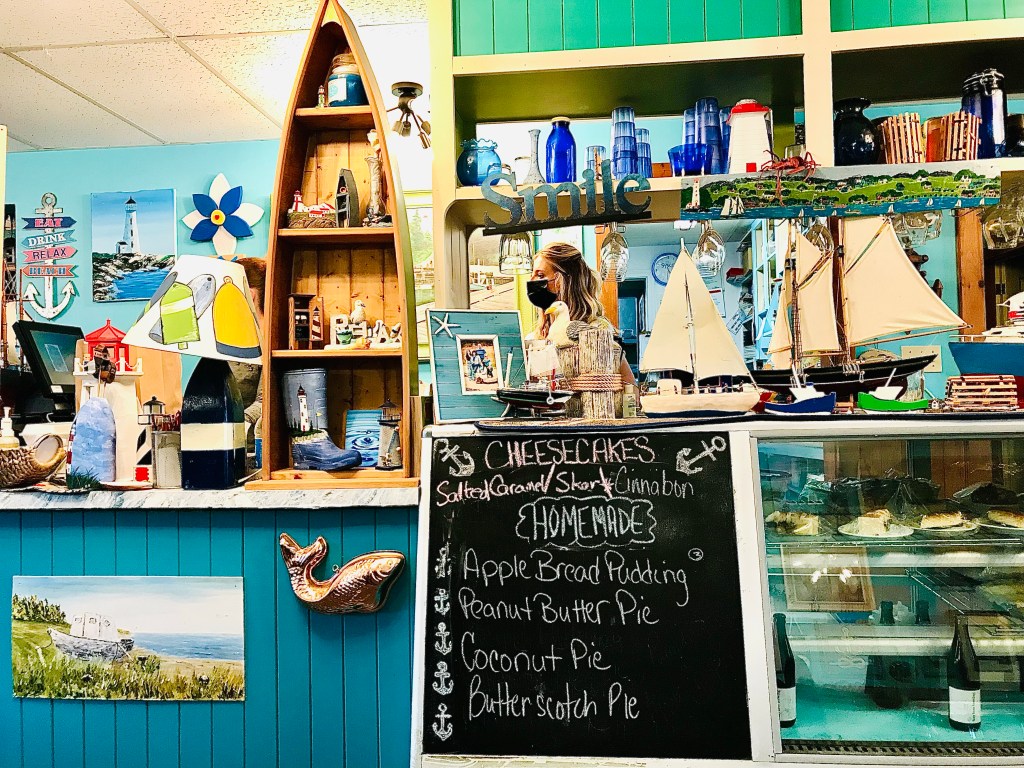 Smile
EAT
DRINK
RELAX
BEACH
CHEESECAKES
Salted Caramel/Skor/Cinnabon
{HOMEMADE}
Apple Bread Pudding ③
Peanut Butter Pie
Coconut Pie
Butterscotch Pie